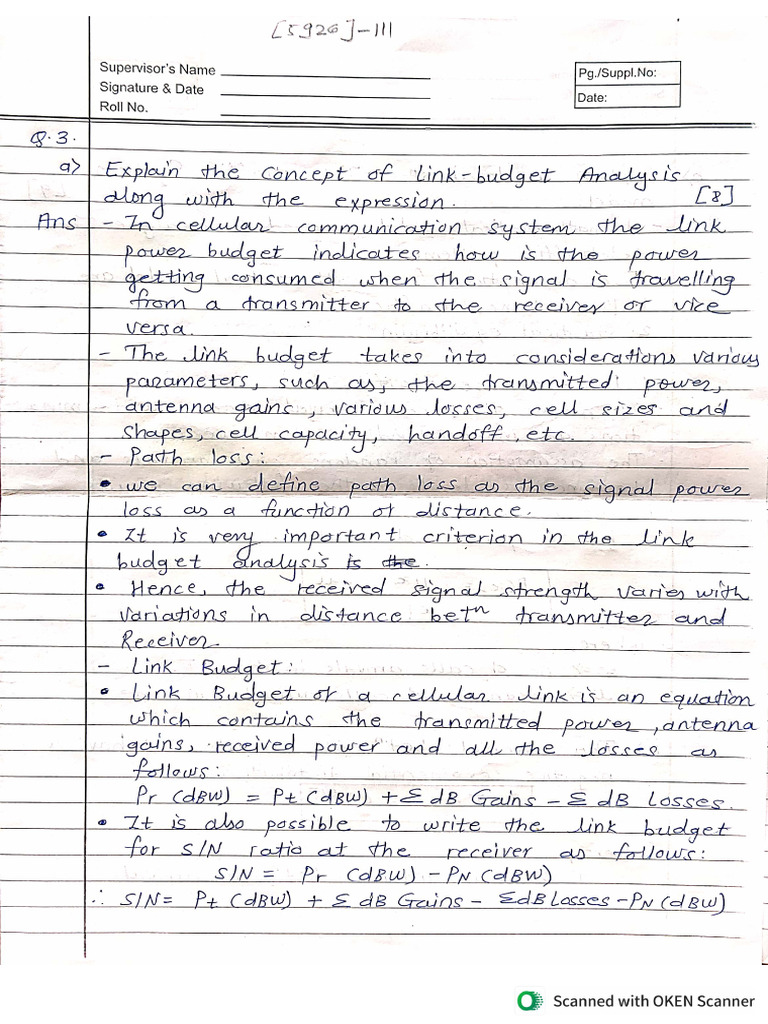 [5926]-111
Supervisor's Name
Signature & Date
Roll No.
Pg./Suppl.No:
Date:
Q.3.
a) Explain the Concept of Link-budget Analysis
along with the expression. [8]
Ans - In cellular communication system the link
power budget indicates how is the power
getting consumed when the signal is travelling
from a transmitter to the receiver or vice
versa.
- The link budget takes into considerations various
parameters, such as, the transmitted power,
antenna gains, various losses, cell sizes and
shapes, cell capacity, handoff, etc.
- Path loss:
• we can define path loss as the signal power
loss as a function of distance.
• It is very important criterion in the link
budget analysis is the.
• Hence, the received signal strength varies with
variations in distance betn transmitter and
Receiver.
- Link Budget:
• Link Budget of a cellular link is an equation
which contains the transmitted power, antenna
gains, received power and all the losses as
follows:
Pr (dBW) = Pt (dBW) + Σ dB Gains - Σ dB Losses.
• It is also possible to write the link budget
for S/N ratio at the receiver as follows:
S/N = Pr (dBW) - PN (dBW)
∴ S/N = Pt (dBW) + Σ dB Gains - Σ dB Losses - PN (dBW)
Scanned with OKEN Scanner